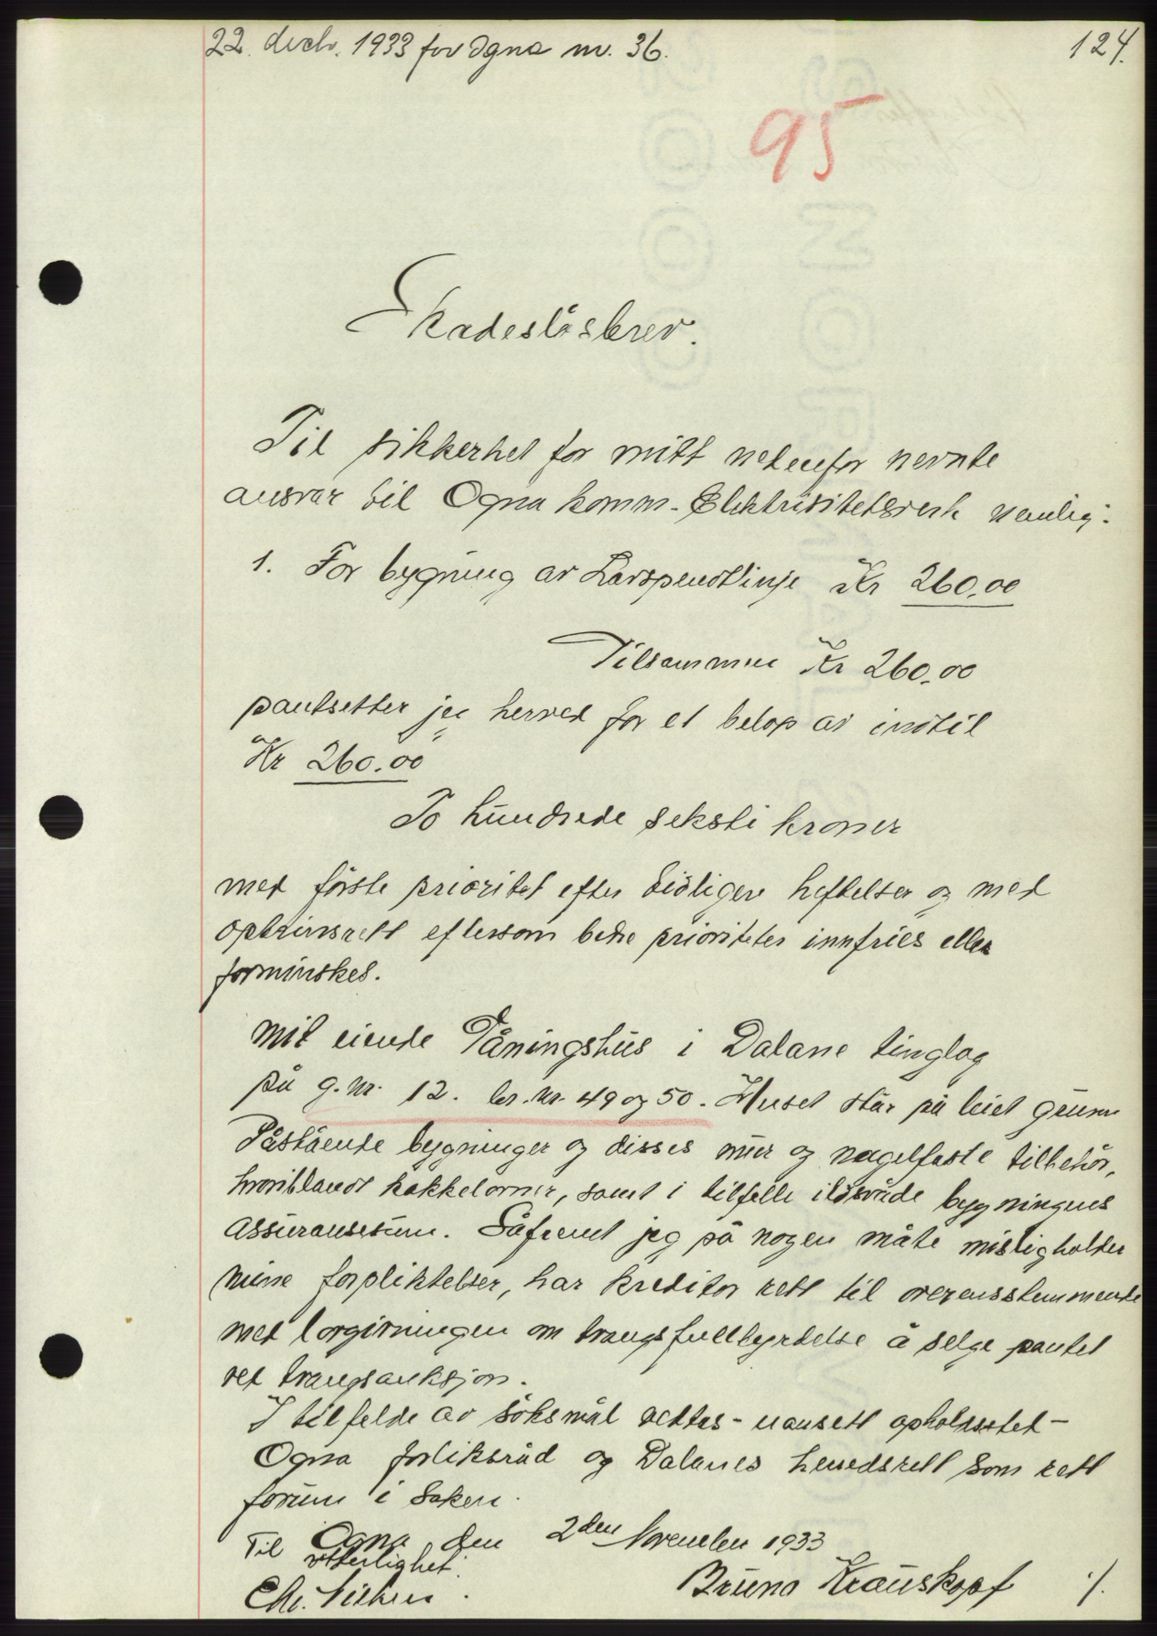 22. decbr. 1933 for Ogna nr. 36. 124.
95
Skadesløsbrev.
Til sikkerhet for mitt nedenfor nevnte
ansvar til Ogna komm. Elektrisitetsverk nemlig:
1. For bygning av Lavspendtlinje Kr 260,00
Tilsammen Kr 260,00
pantsetter jeg herved for et beløp av indtil
Kr 260.00
To hundrede seksti kroner
med første prioritet efter tidligere heftelser og med
optrinsrett eftersom bedre prioriteter innfries eller
forminskes.
mit eiende Våningshus i Dalane tinglag
på g.nr. 12. br.nr. 49 og 50. Huset står på leiet grunn
Påstående bygninger og disses mur og nagelfaste tilbehör,
hvoriblandt kakkelovner, samt i tilfelle ildsvåde bygningens
assuransesum. Såfremt jeg på nogen måte misligholder
mine forpliktelser, har kreditor rett til overensstemmende
med lovgivningen om tvangsfullbyrdelse å selge pantet
ved tvangsauksjon.
I tilfelde av söksmål vedtas - uansett opholdssted -
Ogna forliksråd og Dalanes herredsrett som rett
forum i saken.
Ogna den 2den November 1933
Til vitterlighet:
Bruno Krauskopf ./.
Chr.